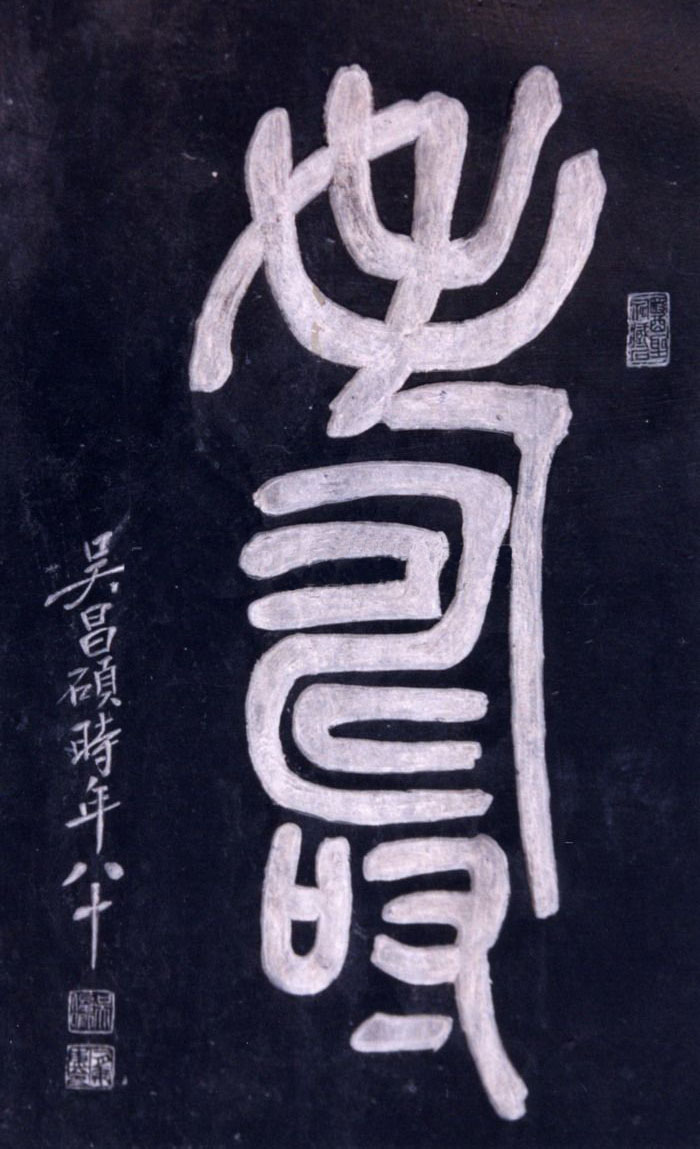 壽
吴昌碩時年八十